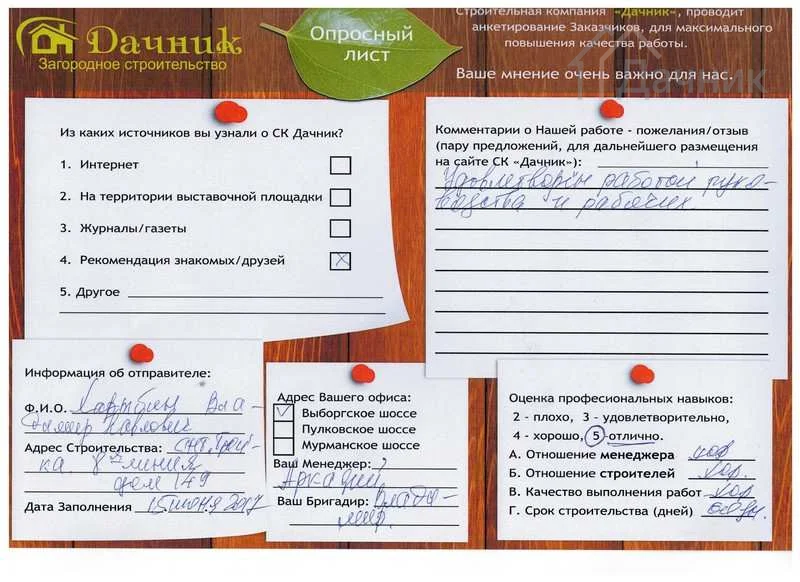 Дачник
Загородное строительство
Опросный
лист
Строительная компания «Дачник», проводит
анкетирование Заказчиков, для максимального
повышения качества работы.
Ваше мнение очень важно для нас.
Дачник
Из каких источников вы узнали о СК Дачник?
1. Интернет
2. На территории выставочной площадки
3. Журналы/газеты
4. Рекомендация знакомых/друзей
5. Другое
Комментарии о Нашей работе - пожелания/отзыв
(пару предложений, для дальнейшего размещения
на сайте СК «Дачник»):
Удовлетворён работой руко-
водства и рабочих
Информация об отправителе:
Ф.И.О. Вла-
димир Павлович
Адрес Строительства: снт
ка 8ая линия
дом 149
Дата Заполнения 15 июня 2017
Адрес Вашего офиса:
Выборгское шоссе
Пулковское шоссе
Мурманское шоссе
Ваш Менеджер:
Аркадий
Ваш Бригадир: Влади-
мир.
Оценка профессиональных навыков:
2 - плохо, 3 - удовлетворительно,
4 - хорошо, 5 -отлично.
А. Отношение менеджера хор
Б. Отношение строителей хор.
В. Качество выполнения работ хор
Г. Срок строительства (дней)